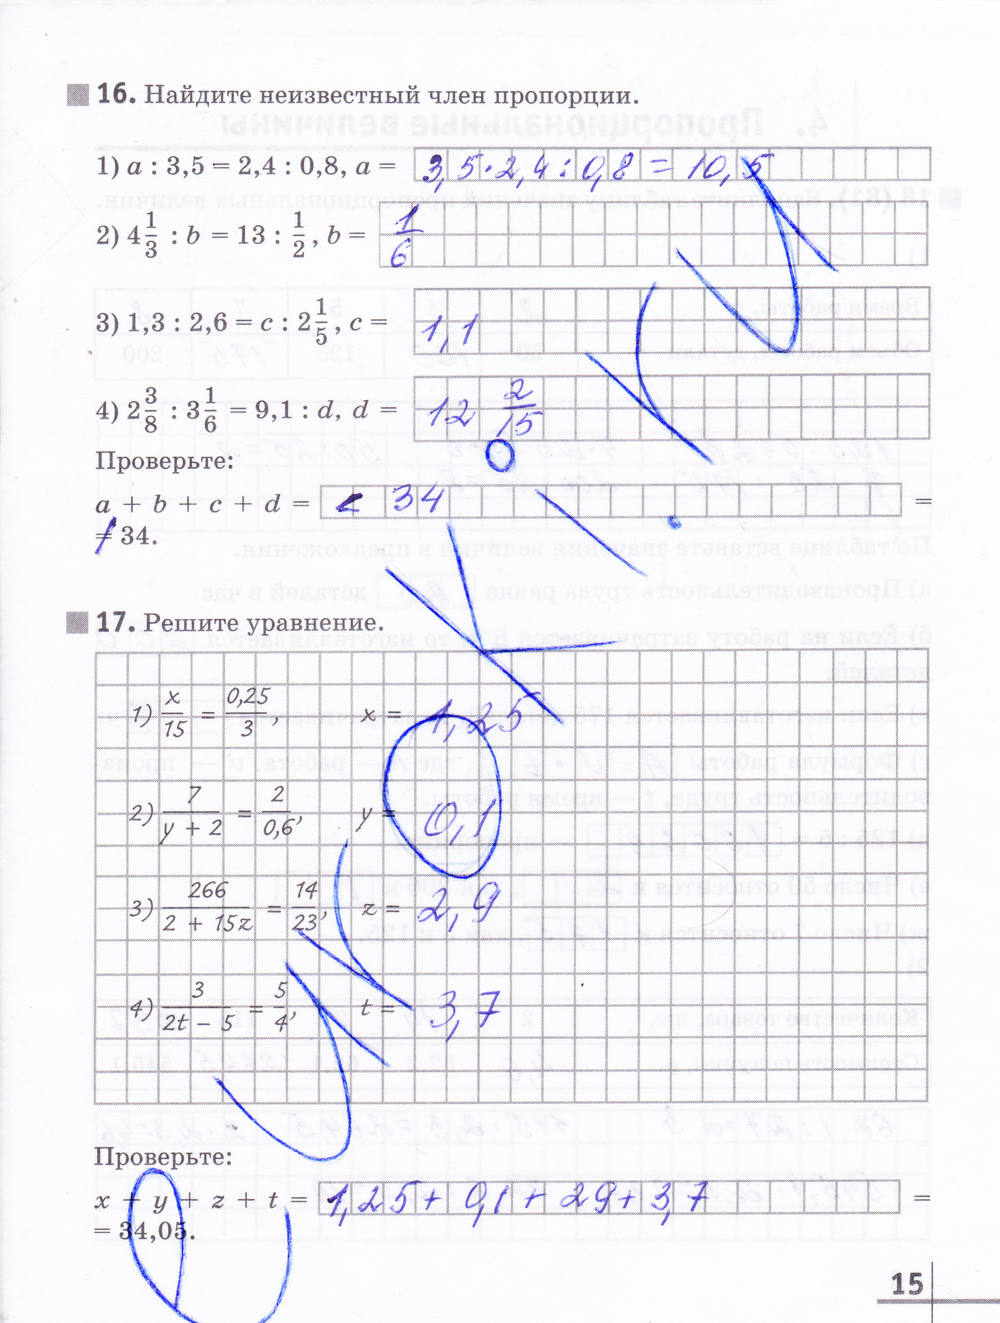 16. Найдите неизвестный член пропорции.
1) a : 3,5 = 2,4 : 0,8, a = 3,5·2,4:0,8 = 10,5
2) 4 1/3 : b = 13 : 1/2, b = 1/6
3) 1,3 : 2,6 = c : 2 1/5, c = 1,1
4) 2 3/8 : 3 1/6 = 9,1 : d, d = 12 2/15
Проверьте:
a + b + c + d = 34 =
= 34.
17. Решите уравнение.
1) x/15 = 0,25/3, x = 1,25
2) 7/(y + 2) = 2/0,6, y = 0,1
3) 266/(2 + 15z) = 14/23, z = 2,9
4) 3/(2t – 5) = 5/4, t = 3,7
Проверьте:
x + y + z + t = 1,25 + 0,1 + 29 + 3,7 =
= 34,05.
15